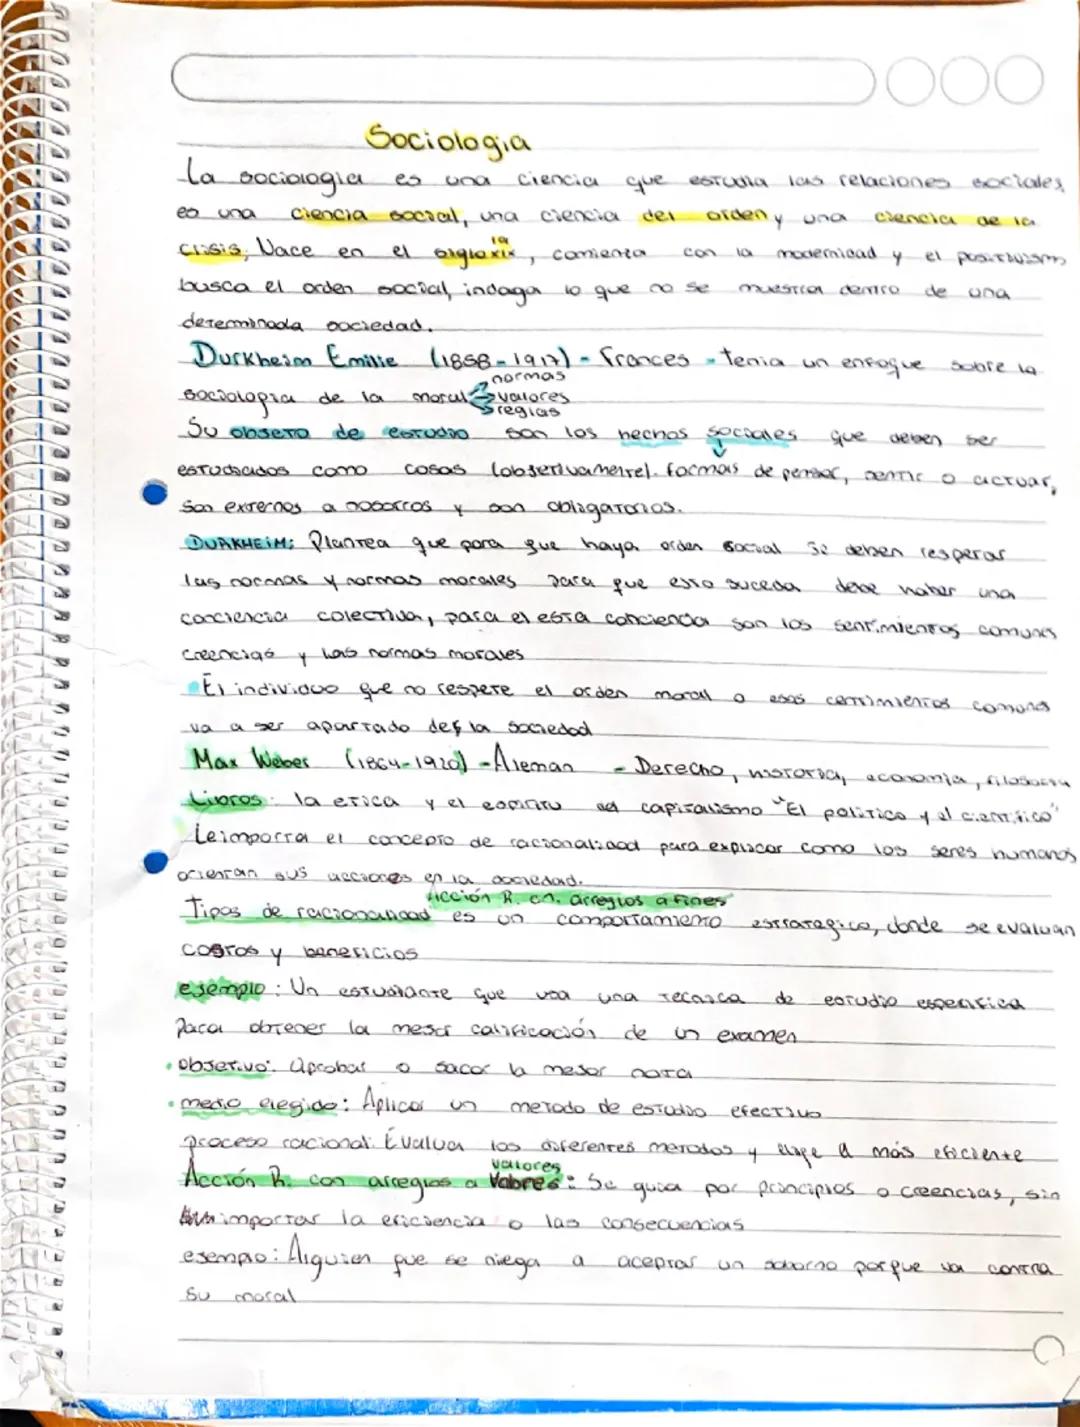 Sociologia
La sociologia es una ciencia que estudia las relaciones sociales,
es una ciencia social, una ciencia del orden y una ciencia de la
crisis, Nace en el siglo xix 19, comienza con la modernidad y el positivism
busca el orden social, indaga lo que no se muestra dentro de una
determinada sociedad.
Durkheim Emilie (1858-1917) - Frances - tenia un enfoque sobre la
normas
sociologia de la moral valores
reglas
Su objeto de estudio son los hechos sociales que deben ser
estudiados como cosas (objetivamente). formas de pensar, sentir o actuar,
son externos a nosotros y son obligatorios.
DURKHEIM: Plantea que para que haya orden social se deben respetar
las normas y normas morales para que esto suceda debe haber una
conciencia colectiva, para el esta conciencia son los sentimientos comunes
creencias y las normas morales
El individuo que no respete el orden moral o esos sentimientos comunes
va a ser apartado de la sociedad
Max Weber (1864-1920) - Aleman - Derecho, historia, economia, filosofia
Libros: la etica y el espiritu del capitalismo "El politico y el cientifico"
Le importa el concepto de racionalidad para explicar como los seres humanos
orientan sus acciones en la sociedad.
Acción R. cn. arreglos a fines
Tipos de racionalidad es un comportamiento estrategico, donde se evaluan
costos y beneficios
ejemplo: Un estudiante que usa una tecnica de estudio especifica
para obtener la mejor calificación de un examen
• objetivo: aprobar o sacar la mejor nota
• medio elegido: Aplicar un metodo de estudio efectivo
proceso racional: Evalua los diferentes metodos y elige el más eficiente
valores
Acción R. con arreglos a Valores: Se guia por principios o creencias, sin
importar la eficiencia o las consecuencias
ejemplo: Alguien que se niega a aceptar un soborno porque va contra
su moral